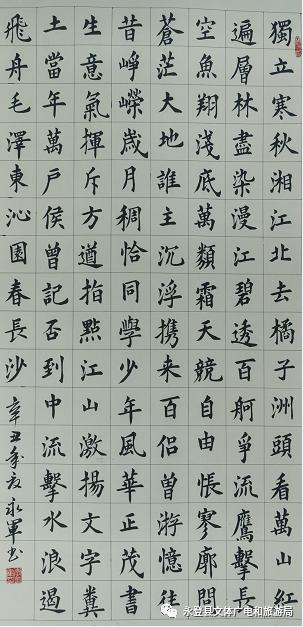 獨立寒秋湘江北去橘子洲頭看萬山紅
遍層林盡染漫江碧透百舸爭流鷹擊長
空魚翔淺底萬類霜天競自由悵寥廓問
蒼茫大地誰主沉浮携来百侣曾游憶往
昔崢嶸歲月稠恰同學少年風華正茂書
生意氣揮斥方遒指點江山激揚文字糞
土當年萬戶侯曾記否到中流擊水浪遏
飛舟毛澤東沁園春長沙
辛丑年永軍书
永登县文体广电和旅游局